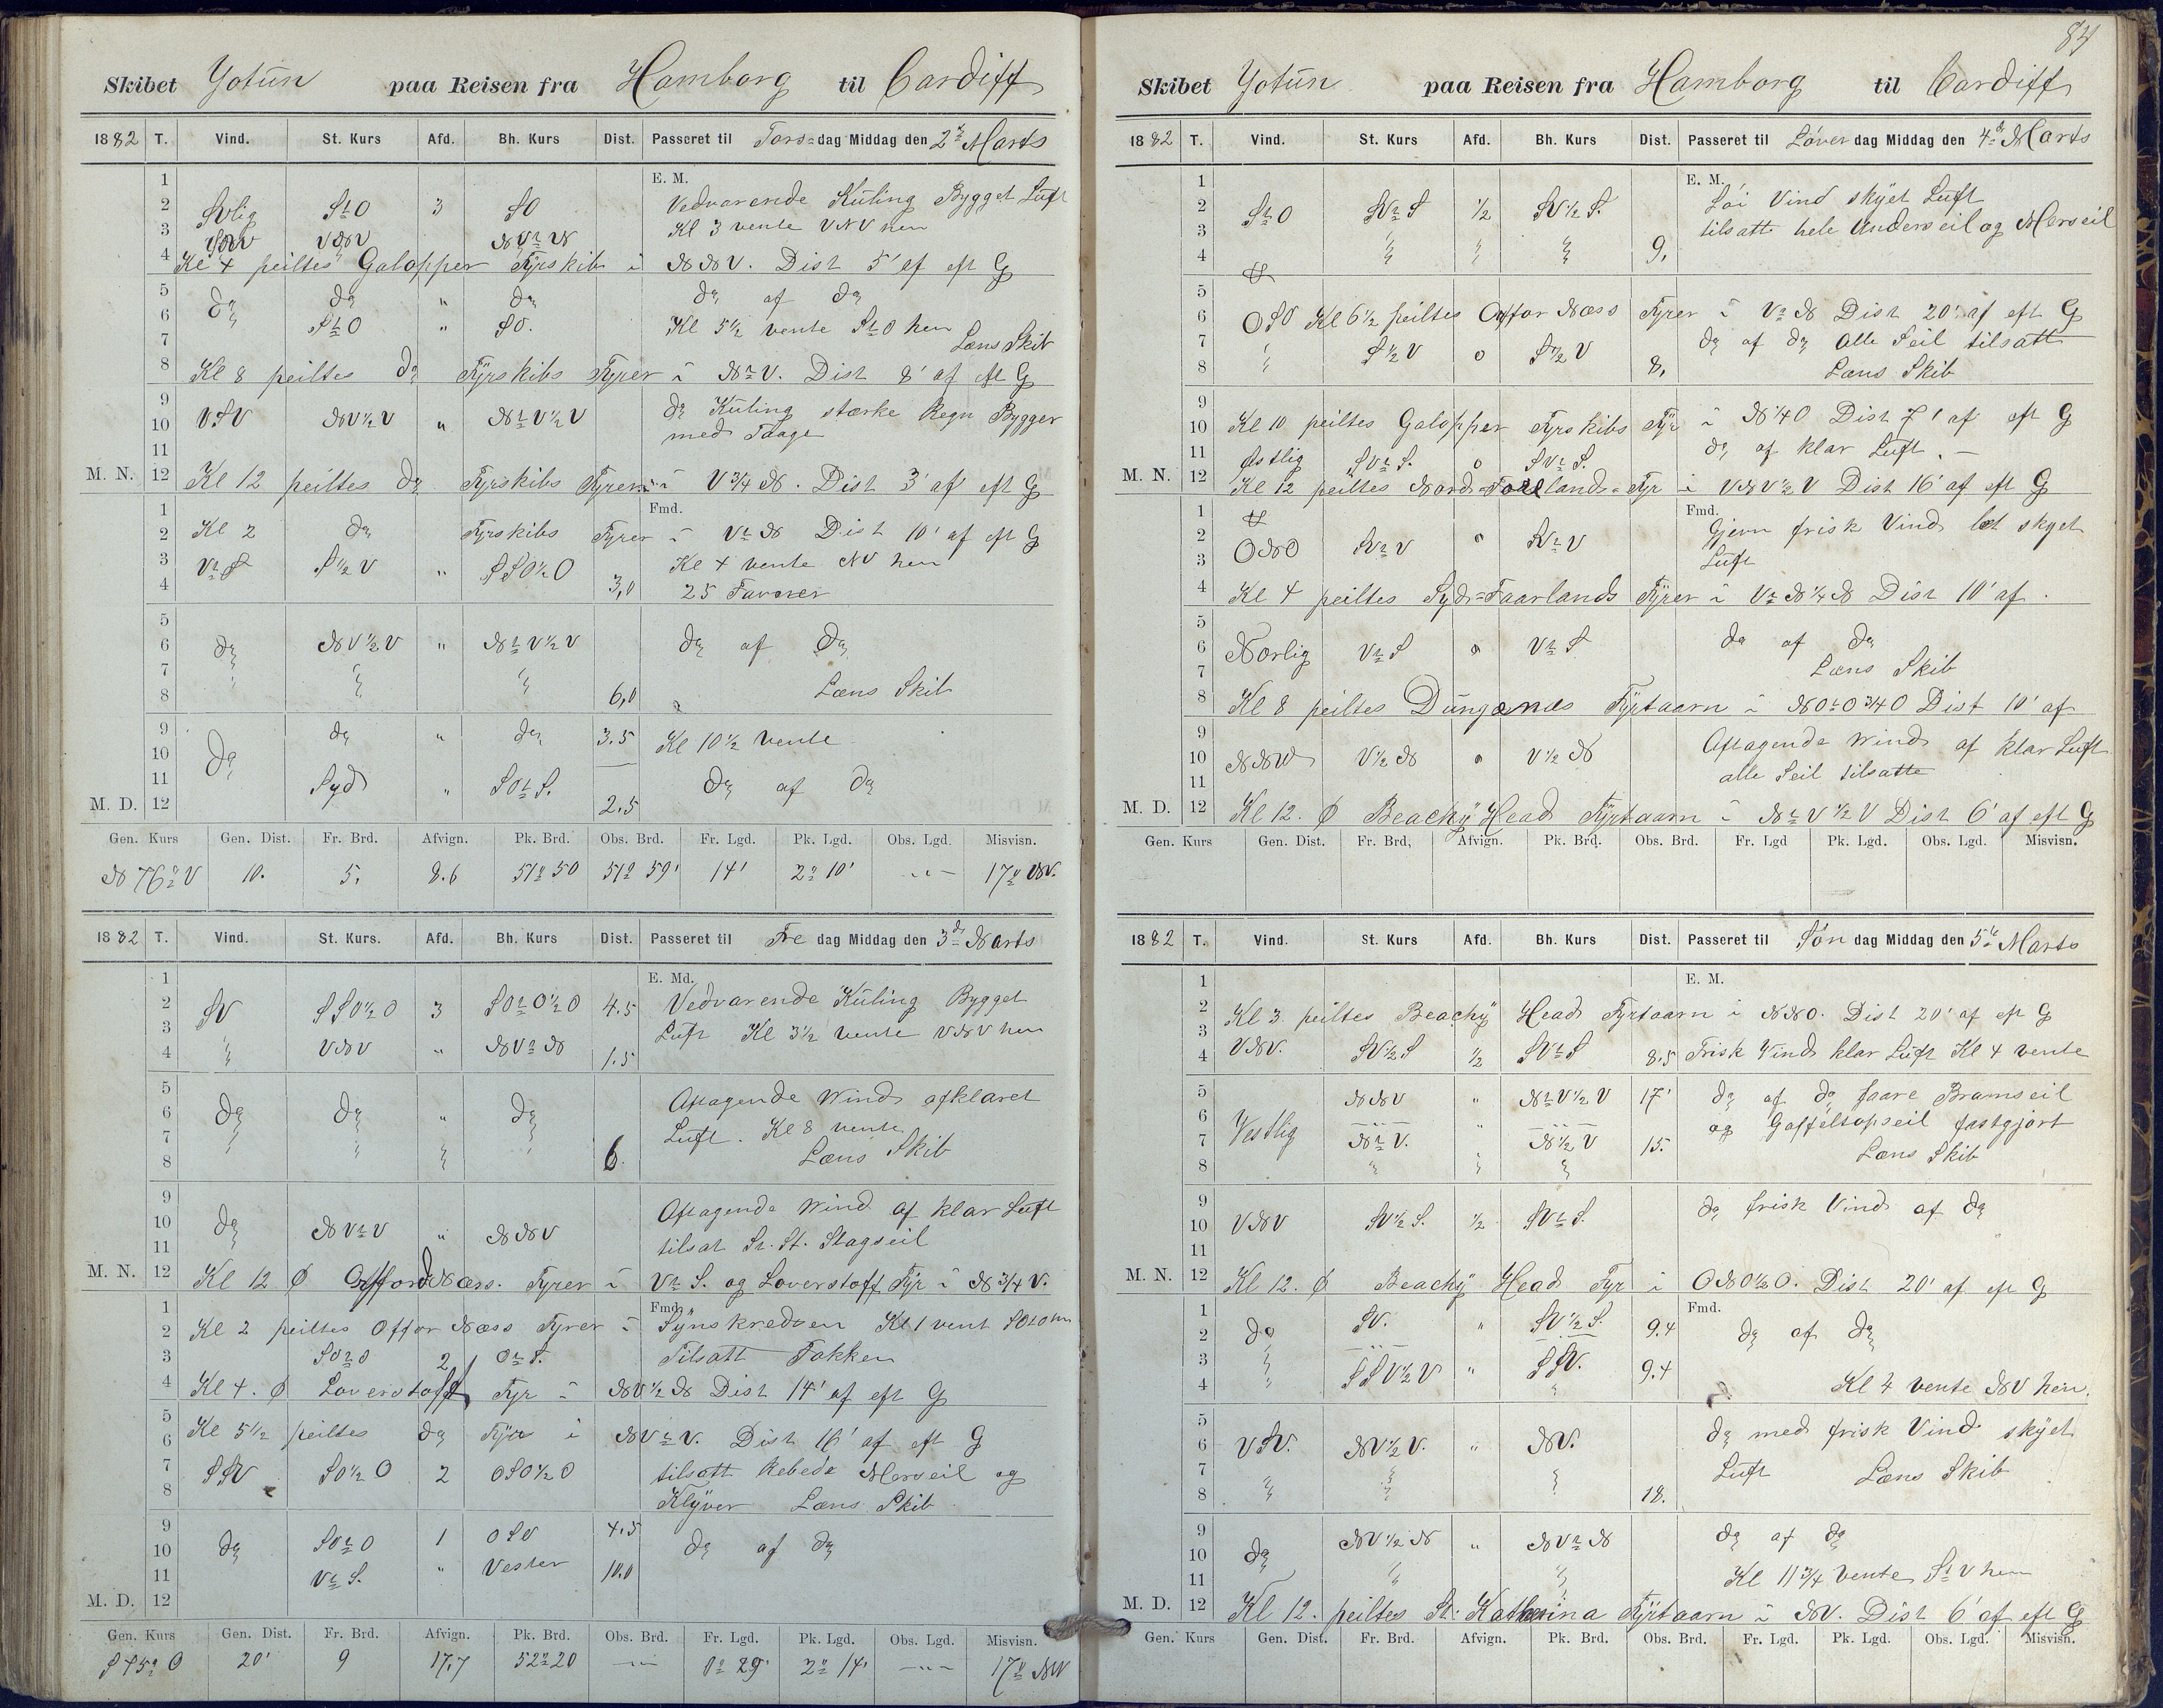 Skibet Yotun paa Reisen fra Hamborg til Cardiff
1882 T. Vind. St. Kurs Afd. Bh. Kurs Dist. Passeret til Torsdag Middag den 2 Marts
1 E. M.
2 SVlig StO 3 SO Vedvarende Kuling Bygget Luft
3 VNV Kl 3 vente VNV hen
4 Kl 4 peiltes Galopper Fyrskib i NNV. Dist 5' af eft G
5 do do " do do af do
6 StO " SO. Kl 5½ vente StO hen
7 Læns Skib
8 Kl 8 peiltes do Fyrskibs Fyrer i NtV. Dist 8' af eft G
9 do Kuling stærke Regn Bygger
10 VSV NV½V " NtV½V med Taage
11
M. N. 12 Kl 12 peiltes do Fyrskibs Fyrer i V¾N. Dist 3' af eft G
1 Fmd.
2 Kl 2 do Fyrskibs Fyrer i VtN Dist 10' af eft G
3 VtS S½V " SSO½O Kl 4 vente NV hen
4 3,0 25 Favner
5
6 do NV½V " NtV½V do af do
7
8 6,0 Læns Skib
9 do " do 3.5 Kl 10½ vente
10 do
11 Syd " SOtS. do af do
M. D. 12 2.5
Gen. Kurs Gen. Dist. Fr. Brd. Afvign. Pk. Brd. Obs. Brd. Fr. Lgd. Pk. Lgd. Obs. Lgd. Misvisn.
N 76° V 10. 5. 8.6 51° 50 51° 59' 14' 2° 10' -"- 17° NV.
1882 T. Vind. St. Kurs. Afd. Bh. Kurs Dist. Passeret til Fredag Middag den 3 Marts
1 E. Md.
2 SV SSO½O 3 SOtO½O 4.5 Vedvarende Kuling Bygget
3 Luft Kl 3½ vente VNV hen
4 VNV " NVtN 1.5
5 Aftagende Wind afklaret
6 do do " do
7 Luft. Kl 8 vente
8 6. Læns Skib
9 Aftagende Wind af klar Luft
10 do NVtV " NNV
11 tilsat St. Stagseil
M. N. 12 Kl 12 Ø Offord Næss. Fyrer i VtS. og Loverstoff Fyr i N¾V.
1 Fmd.
2 Kl 2 peiltes Offor Næss Fyrer i Synskredsen Kl 1 vent SOtO hen
3 SOtO 2 OtS. Tilsatt Fokken
4 Kl 4. Ø Loverstoff Fyr i NV½N Dist 14' af eft G
5
6 Kl 5½ peiltes do Fyr i NVtV. Dist 16' af eft G
7 SSV SO½O 2 OSO½O tilsatt Rebede Merseil og
8 Klyver Læns Skib
9 4.5
10 do SOtO 1 OSO do af do
11 VtS. " Vester 10.0
M. D. 12
Gen. Kurs Gen. Dist. Fr. Brd. Afvign. Pk. Brd. Obs. Brd. Fr. Lgd. Pk. Lgd. Obs. Lgd. Misvisn.
S 45° O 20' 9 17.7 52° 20 -"- 0° 29' 2° 14' -"- 17° NV
84
Skibet Yotun paa Reisen fra Hamborg til Cardiff
1882 T. Vind. St. Kurs Afd. Bh. Kurs Dist. Passeret til Löverdag Middag den 4 Marts
1 E. M.
2 StO SVtS ½ SV½S. Löi Vind skyet Luft
3 tilsatt hele Underseil og Merseil
4 9.
5
6 OSO Kl 6½ peiltes Offor Næss Fyrer i VtN Dist 20' af eft G
7 S½V o S½V do af do alle Seil tilsatt
8 8. Læns Skib
9
10 Kl 10 peiltes Galopper Fyrskibs Fyr i N¼O Dist 7' af eft G
11 Østlig SVtS. o SVtS. do af klar Luft. -
M. N. 12 Kl 12 peiltes Nord-Forlands-Fyr i VNV½V Dist 16' af eft G
1 Fmd.
2 Gjevn frisk Vind let skyet
3 ONO SVtV o SVtV Luft
4 Kl 4 peiltes Syd-Faarlands Fyrer i VtN¼N Dist 10' af.
5
6 Norlig VtS o VtS do af do
7 Læns Skib
8 Kl 8 peiltes Dungenæs Fyrtaarn i NOtO¾O Dist 10' af
9
10 NNW V½N o V½N Aftagende Wind af klar Luft
11 alle Seil tilsatte
M. D. 12 Kl 12. Ø Beachy Head Fyrtaarn i NtV½V Dist 6' af eft G
Gen. Kurs Gen. Dist. Fr. Brd, Afvign. Pk. Brd. Obs. Brd. Fr. Lgd Pk. Lgd. Obs. Lgd. Misvisn.
1882 T. Vind. St. Kurs Afd. Bh. Kurs Dist. Passeret til Söndag Middag den 5 Marts
1 E. M.
2
3 Kl 3 peiltes Beachy Head Fyrtaarn i NNO. Dist 20' af eft G
4 VNV. SV½S ½ SVtS 8.5 Frisk Vind klar Luft Kl 4 vente
5 NNV " NtV½V 17' do af do faare Bramseil
6 og Gaffeltopseil fastgjort
7 Vestlig NtV. " N½V 15.
8 Læns Skib
9
10 VNV SV½S. ½ SVtS. do frisk Vind af do
11
M. N. 12 Kl 12. Ø Beachy Head Fyr i ONO½O. Dist 20' af eft G
1 Fmd.
2 do SV. " SV½S. 9.4 do af do
3 SSV½V " SSV. 9.4
4 Kl 4 vente NV hen.
5
6 VSV. NV½V. " NV. do med frisk Vind skyet
7 Luft Læns Skib
8 18.
9 NV½N " NVtN do af do
10 do
11 Kl 11¾ vente StV hen
M. D. 12 Kl 12. peiltes St. Katherina Fyrtaarn i NV. Dist 6' af eft G
Gen. Kurs Gen. Dist. Fr. Brd. Afvign. Pk. Brd. Obs. Brd. Fr. Lgd. Pk. Lgd. Obs. Lgd. Misvisn.